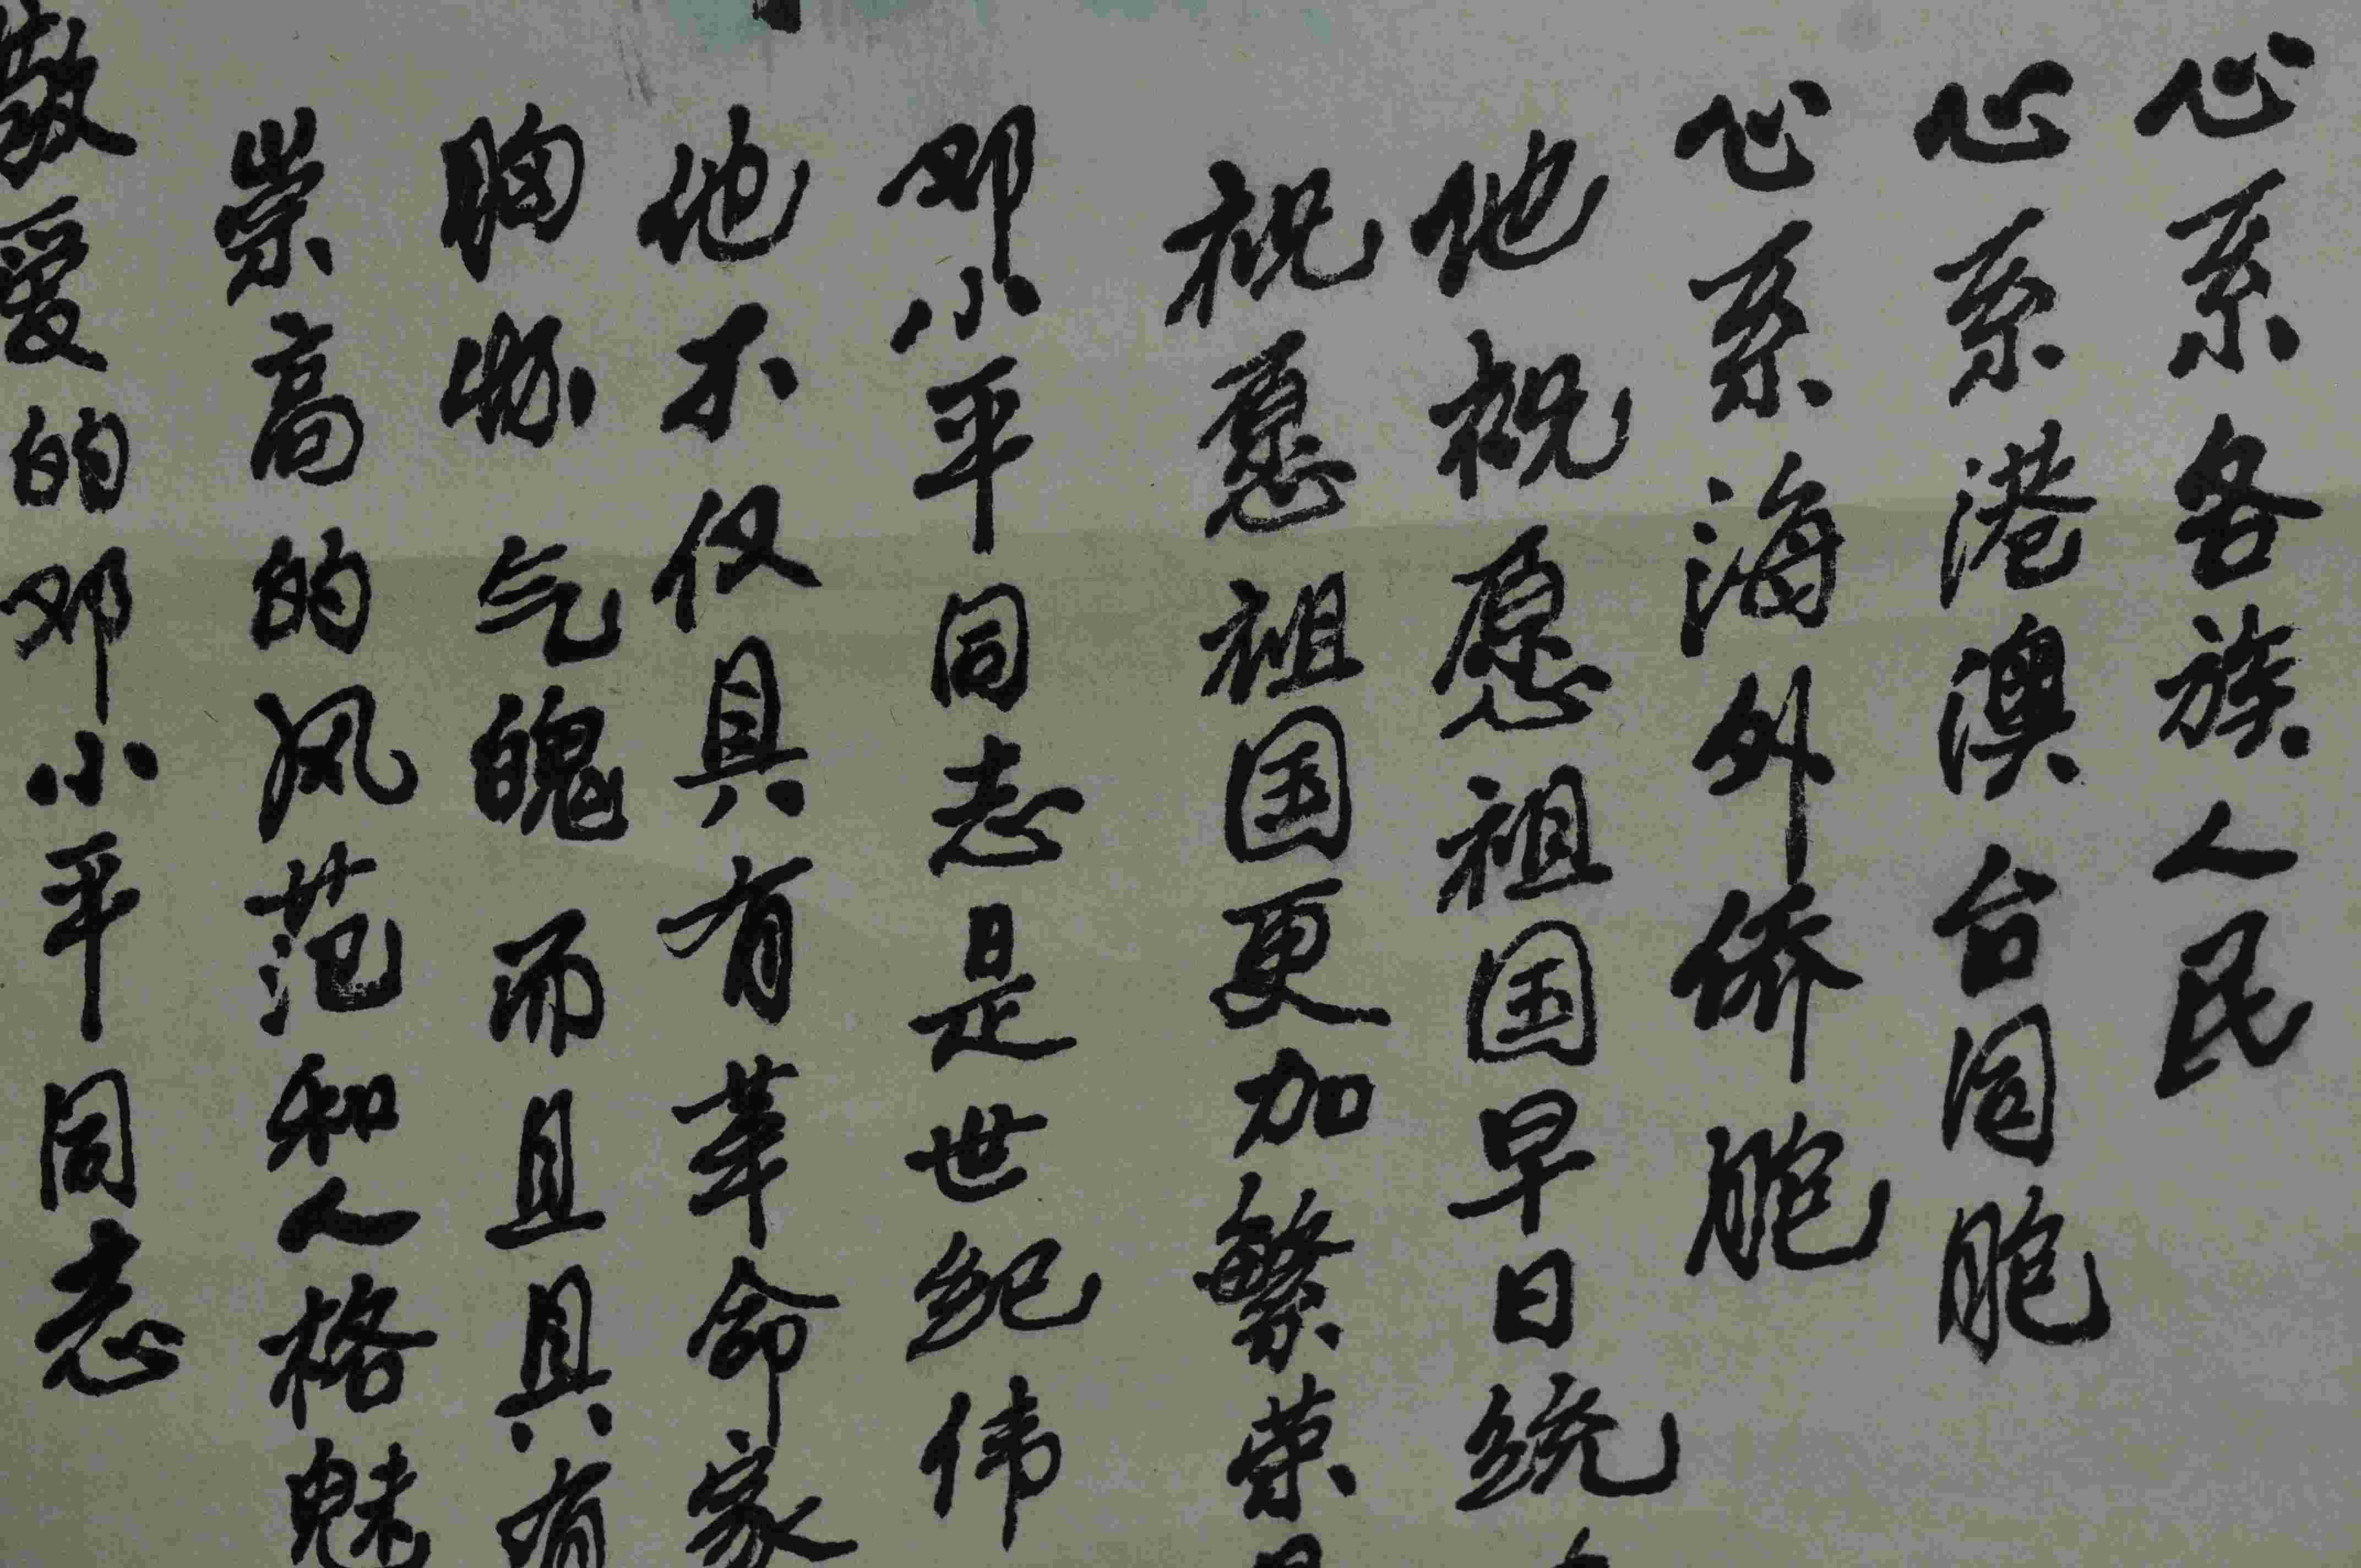 心系各族人民
心系港澳台同胞
心系海外侨胞
他祝愿祖国早日统
祝愿祖国更加繁荣
邓小平同志是世纪伟
他不仅具有革命家
胸怀气魄而且具有
崇高的风范和人格魅
敬爱的邓小平同志